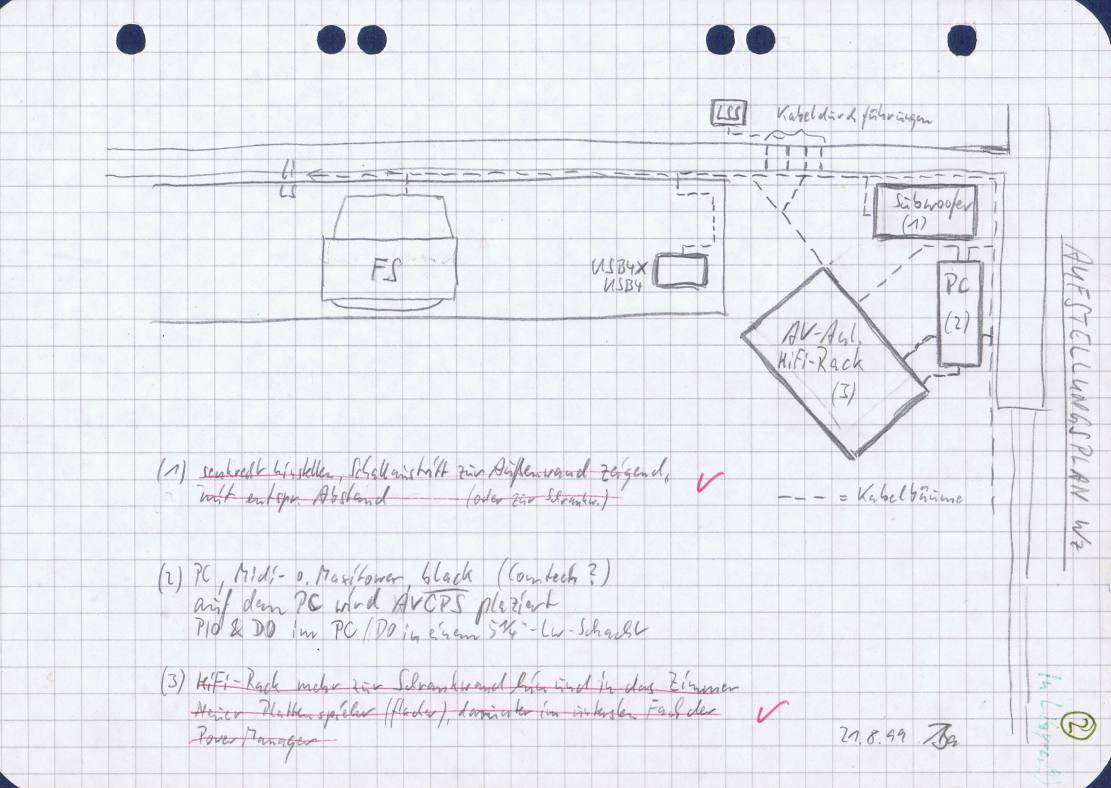 LSS
Kabeldurchführungen
LI
LS
Subwoofer
(1)
FS
USB4X
USB4
PC
(2)
AV-Anl.
HiFi-Rack
(3)
AUFSTELLUNGSPLAN WZ
(1) senkrecht hinstellen, Schallaustritt zur Außenwand zeigend,
mit entspr. Abstand (oder zur Schrankw.)
--- = Kabelbäume
(2) PC, Midi- o. Maxitower, black (Comtech?)
auf dem PC wird AVCPS plaziert
PIO & DO im PC / DO in einem 5 1/4"-Lw-Schacht
(3) HiFi-Rack mehr zur Schrankwand hin und in das Zimmer
Neuer Plattenspieler (flacher), darunter im untersten Fach der
PowerManager
21.8.99
2